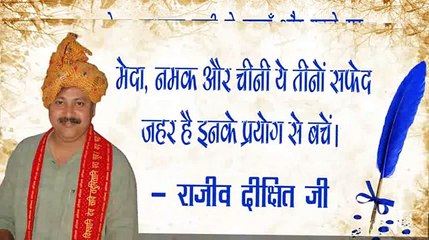 मेदा, नमक और चीनी ये तीनों सफेद
जहर है इनके प्रयोग से बचें।
– राजीव दीक्षित जी